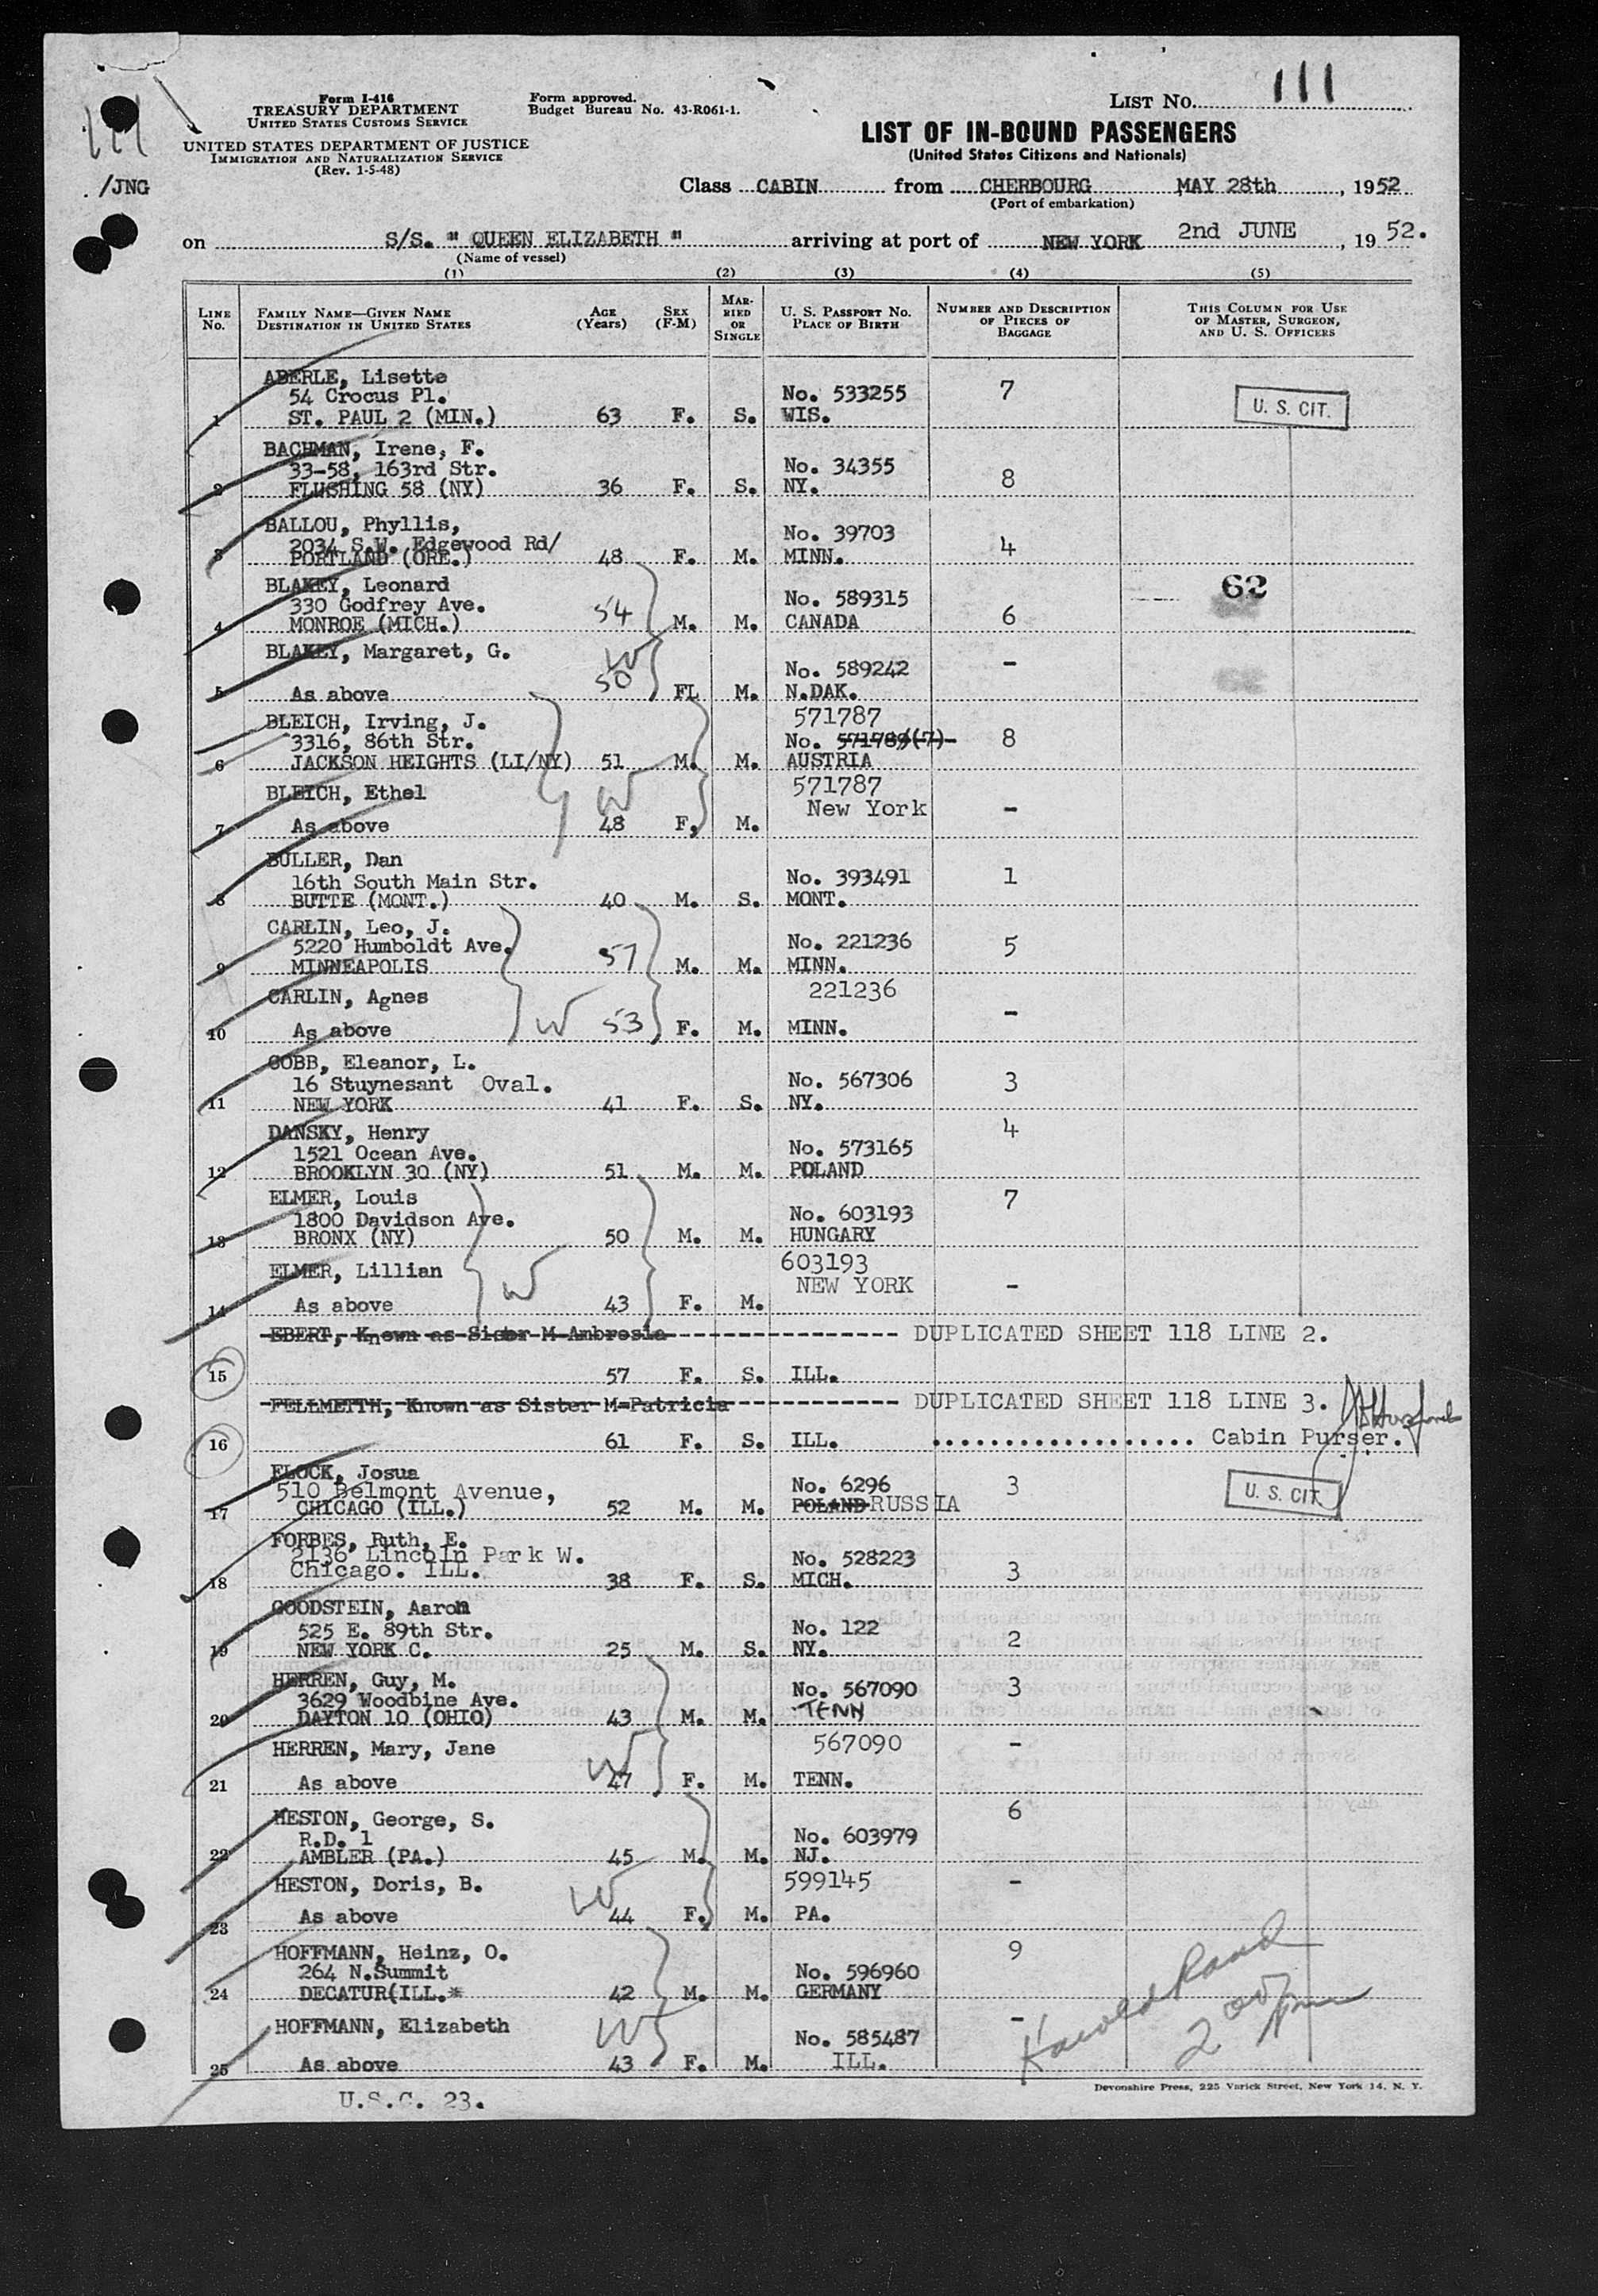 Form I-416
TREASURY DEPARTMENT
UNITED STATES CUSTOMS SERVICE
UNITED STATES DEPARTMENT OF JUSTICE
IMMIGRATION AND NATURALIZATION SERVICE
(Rev. 1-5-48)
Form approved.
Budget Bureau No. 43-R061-1.
LIST NO. 111
111
/JNG
LIST OF IN-BOUND PASSENGERS
(United States Citizens and Nationals)
Class CABIN from CHERBOURG MAY 28th, 1952
(Port of embarkation)
on S/S. " QUEEN ELIZABETH " arriving at port of NEW YORK 2nd JUNE, 19 52.
(Name of vessel)
(1) (2) (3) (4) (5)
LINE No. FAMILY NAME—GIVEN NAME DESTINATION IN UNITED STATES AGE (Years) SEX (F-M) MARRIED OR SINGLE U. S. PASSPORT NO. PLACE OF BIRTH NUMBER AND DESCRIPTION OF PIECES OF BAGGAGE THIS COLUMN FOR USE OF MASTER, SURGEON, AND U. S. OFFICERS
ABERLE, Lisette
54 Crocus Pl. No. 533255 7 U. S. CIT.
1 ST. PAUL 2 (MIN.) 63 F. S. WIS.
BACHMAN, Irene, F.
33-58, 163rd Str. No. 34355 8
2 FLUSHING 58 (NY) 36 F. S. NY.
BALLOU, Phyllis,
2034 S.W. Edgewood Rd/ No. 39703 4
3 PORTLAND (ORE.) 48 F. M. MINN.
BLAKEY, Leonard 62
330 Godfrey Ave. No. 589315 6
4 MONROE (MICH.) 54 M. M. CANADA
BLAKEY, Margaret, G. W No. 589242 -
5 As above 50 FL M. N.DAK.
BLEICH, Irving, J. 571787
3316, 86th Str. No. 571789(7) 8
6 JACKSON HEIGHTS (LI/NY) 51 M. M. AUSTRIA
BLEICH, Ethel W 571787
New York -
7 As above 48 F. M.
BULLER, Dan
16th South Main Str. No. 393491 1
8 BUTTE (MONT.) 40 M. S. MONT.
CARLIN, Leo, J.
5220 Humboldt Ave. No. 221236 5
9 MINNEAPOLIS 57 M. M. MINN.
CARLIN, Agnes 221236 -
10 As above W 53 F. M. MINN.
COBB, Eleanor, L.
16 Stuynesant Oval. No. 567306 3
11 NEW YORK 41 F. S. NY.
DANSKY, Henry 4
1521 Ocean Ave. No. 573165
12 BROOKLYN 30 (NY) 51 M. M. POLAND
ELMER, Louis 7
1800 Davidson Ave. No. 603193
13 BRONX (NY) 50 M. M. HUNGARY
ELMER, Lillian W 603193
NEW YORK -
14 As above 43 F. M.
EBERT, Known as Sister M Ambrosia ---------------- DUPLICATED SHEET 118 LINE 2.
15 57 F. S. ILL.
FELLMETTH, Known as Sister M=Patricia ------------ DUPLICATED SHEET 118 LINE 3.
16 61 F. S. ILL. ................... Cabin Purser.
FLOCK, Josua
510 Belmont Avenue, No. 6296 3 U. S. CIT.
17 CHICAGO (ILL.) 52 M. M. POLAND RUSSIA
FORBES, Ruth, E.
2136 Lincoln Park W. No. 528223 3
18 Chicago. ILL. 38 F. S. MICH.
GOODSTEIN, Aaron
525 E. 89th Str. No. 122 2
19 NEW YORK C. 25 M. S. NY.
HERREN, Guy, M.
3629 Woodbine Ave. No. 567090 3
20 DAYTON 10 (OHIO) 43 M. M. TENN
HERREN, Mary, Jane W 567090 -
21 As above 47 F. M. TENN.
HESTON, George, S. 6
R.D. 1 No. 603979
22 AMBLER (PA.) 45 M. M. NJ.
HESTON, Doris, B. W 599145 -
23 As above 44 F. M. PA.
HOFFMANN, Heinz, O. 9
264 N.Summit No. 596960
24 DECATUR(ILL.* 42 M. M. GERMANY
HOFFMANN, Elizabeth W No. 585487 -
25 As above 43 F. M. ILL.
Harold Rand
2 00 pm
Devonshire Press, 225 Varick Street, New York 14, N. Y.
U.S.C. 23.